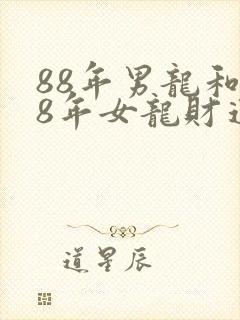 88年男龍和
8年女龍財運
道星辰